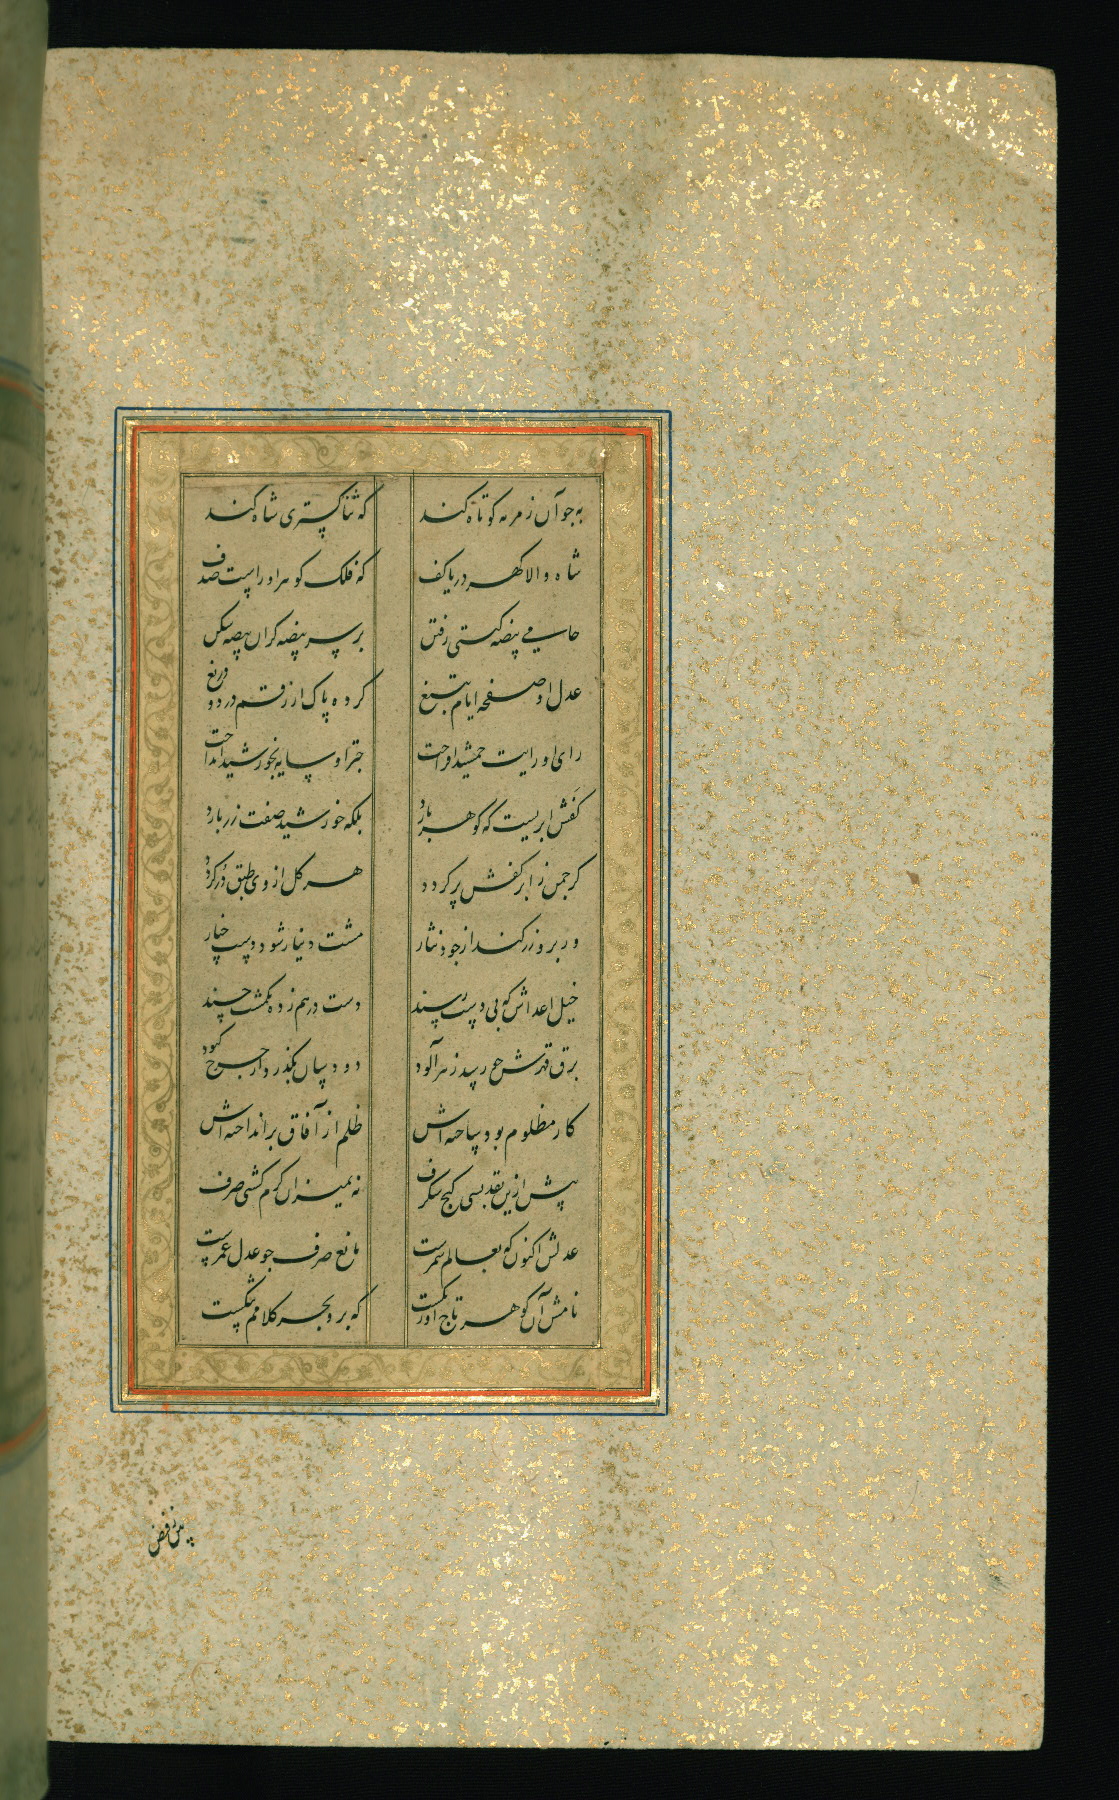 به جو آن زمزمه کوتاه کند که ثنا گستری شاه کند
شاه والا گهر دریا کف که فلک گوهر او راست صدف
حامی بیضه گیتی رفتن بر سر بیضه گران بیضه شکن
عدل او صفحه ایام بتیغ کرده پاک از رقم درد و دریغ
رای او رایت جمشید افراخت چتر او سایه بخورشید انداخت
کفش ابریست که گوهر بارد بلکه خورشید صفت زر بارد
گر چمن ز ابر کفش پر گردد هر گل از وی طبق در گردد
ور بروز کند از جود نثار مشت دینار شود دست چنار
خیل اعداش که بی دست رسند دست درهم زده یکمشت خسند
برق قهرش چو رسد زهرآلود دود پیسان بگذرد از چرخ کبود
کار مظلوم بود ساخته اش ظلم از آفاق برانداخته اش
پیش ازین نقد بسی گنج شگرف نه بمیزان کرم گشتی صرف
عدلش اکنون که بعالم سمرست مانع صرف چو عدل عمرست
نامش آن گوهر تاج آور نگست که برو بحر کلامم تنگست